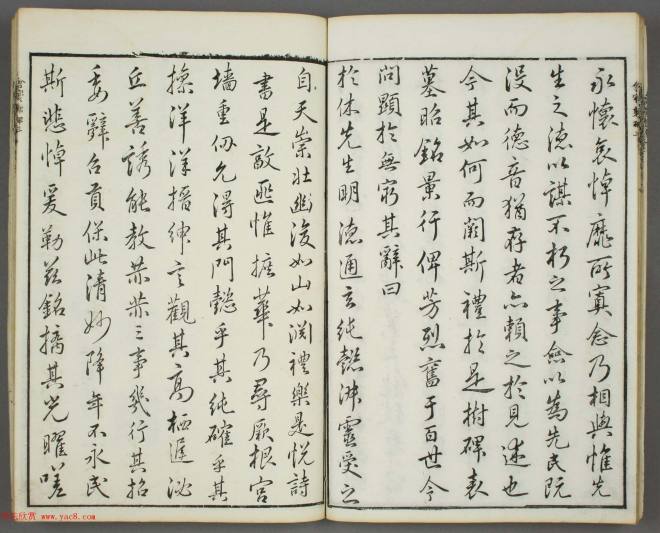 永懷哀悼靡所寘念乃相與惟先
生之德以謀不朽之事僉以為先民既
沒而德音猶存者亦賴之於見述也
今其如何而闕斯禮於是樹碑表
墓昭銘景行俾芳烈奮于百世令
問顯於無窮其辭曰
於休先生明德通玄純懿淑靈受之
自天崇壯幽浚如山如淵禮樂是悅詩
書是敦匪惟摭華乃尋厥根宮
墻重仞允得其門懿乎其純確乎其
操洋洋搢紳言觀其高栖遲泌
丘善誘能教赫赫三事幾行其招
委辭召貢保此清妙降年不永民
斯悲悼爰勒茲銘摛其光曜嗟
欣赏 www.yac8.com